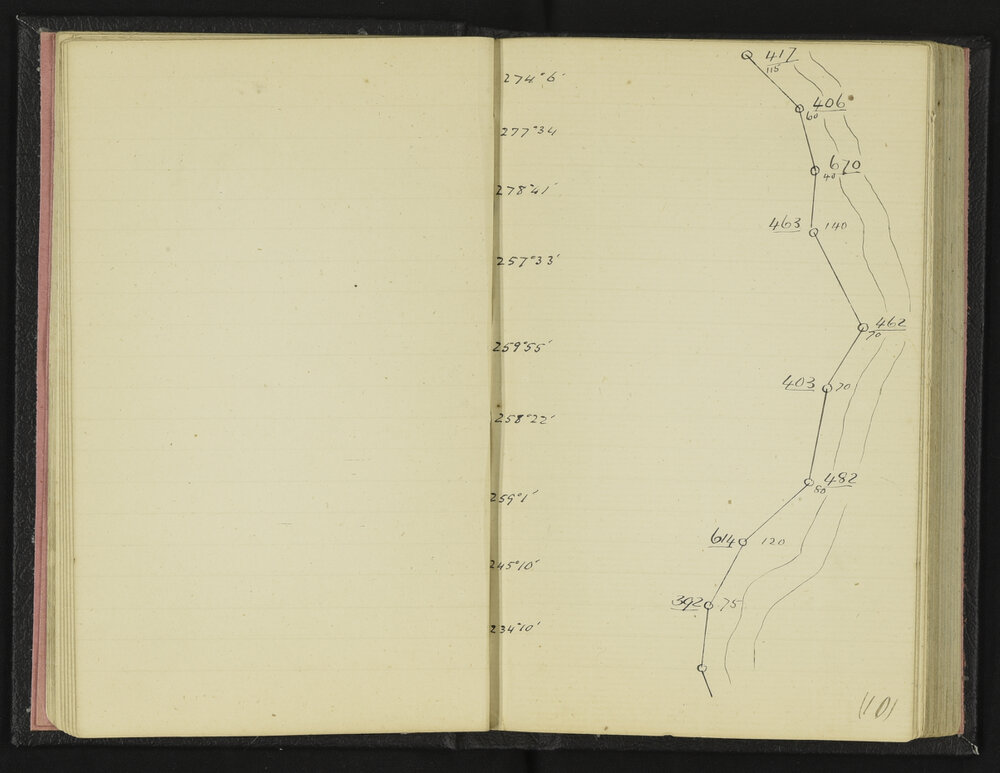 417
115
274°6'
406
60
277°34
670
40
278°41'
463 140
257°33'
462
70
259°55'
403 70
258°22'
482
80
259°1'
614 120
245°10'
392 75
234°10'
(10)